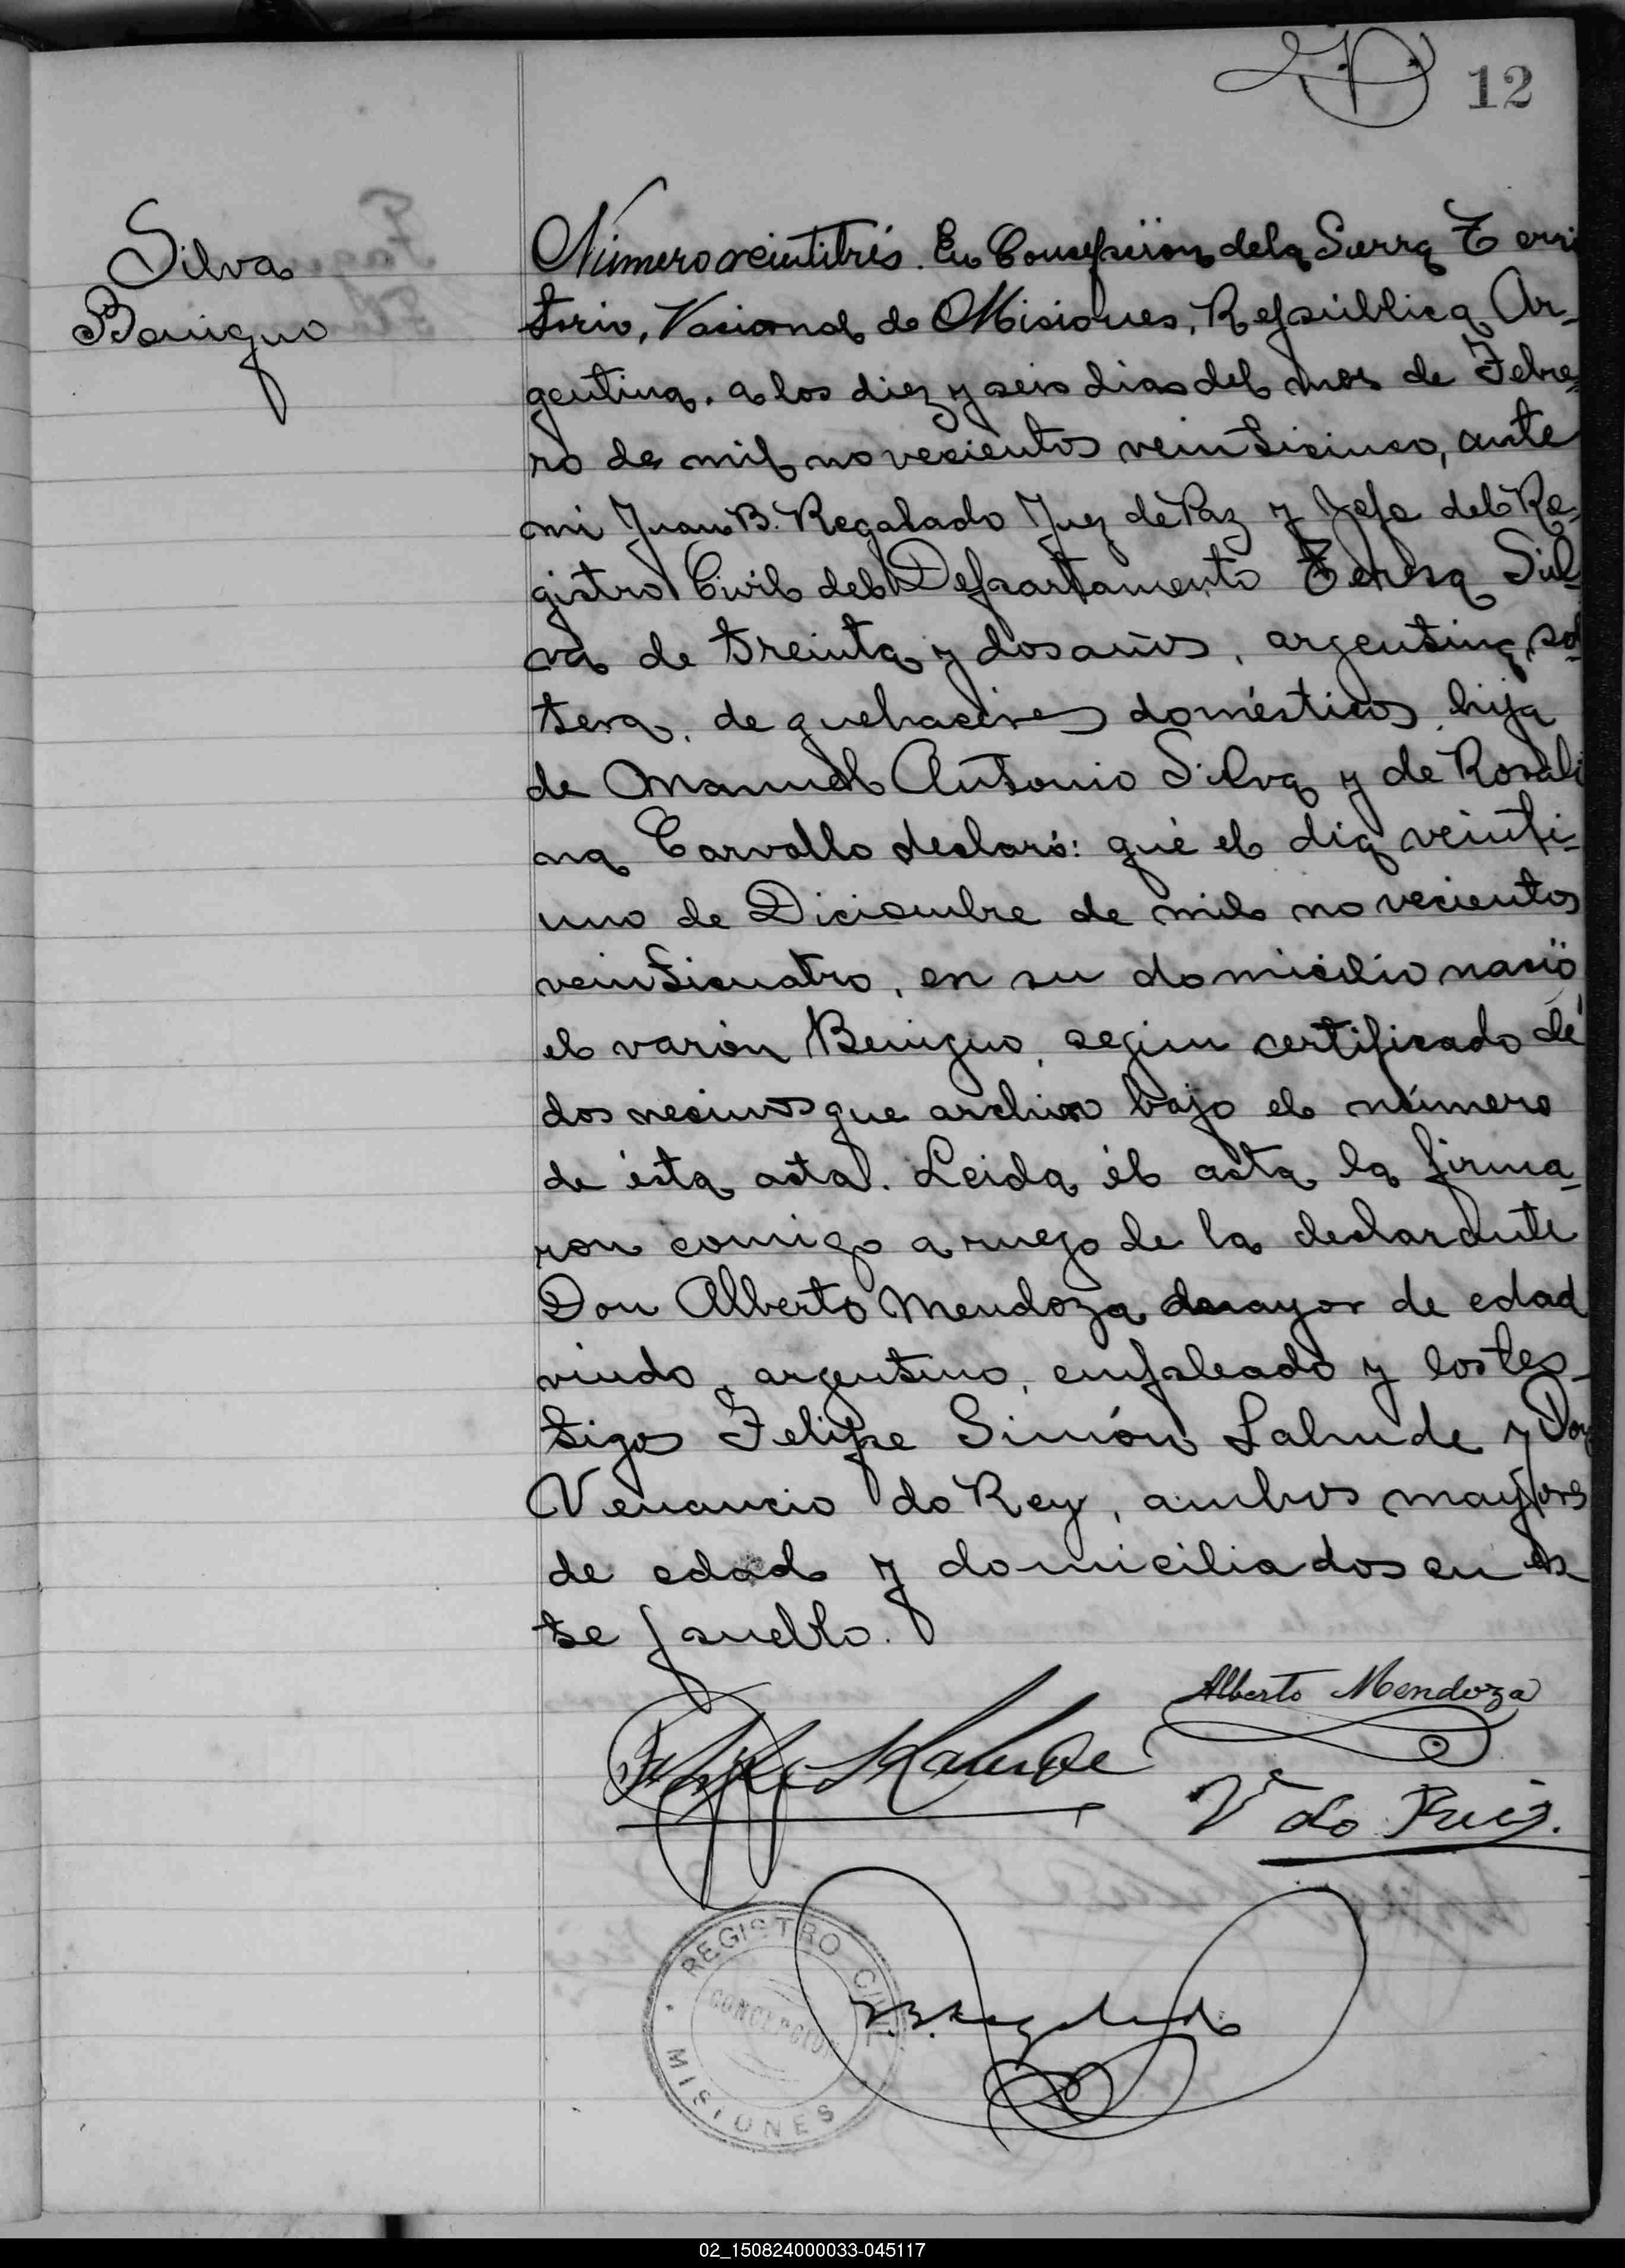 12
Silva
Benigno
Número veintitrés. En Concepción dela Sierra Terri
torio, Nacional de Misiones, República Ar-
gentina, a los diez y seis dias del mes de Febre-
ro de mil novecientos veinticinco, ante
mi Juan B. Regalado Juez de Paz y Jefe del Re-
gistro Civil del Departamento Teresa Sil-
va de treinta y dos años, argentina, sol-
tera, de quehaceres domésticos, hija
de Manuel Antonio Silva y de Rosali
na Carvallo declaró: qué el dia veinti-
uno de Diciembre de mil novecientos
veinticuatro, en su domicilio nació
el varón Benigno, según certificado de
dos vecinos que archivo bajo el número
de ésta acta. Leida él acta la firma-
ron comigo a ruego de la declarante
Don Alberto Mendoza mayor de edad
viudo, argentino, empleado y los tes-
tigos Felipe Simón Lahude y Don
Venancio do Rey, ambos mayores
de edad y domiciliados en es-
te pueblo.
Alberto Mendoza
Felipe S Lahude
V do Reis.
REGISTRO CIVIL
CONCEPCION
J. B. Regalado
MISIONES
02_150824000033-045117